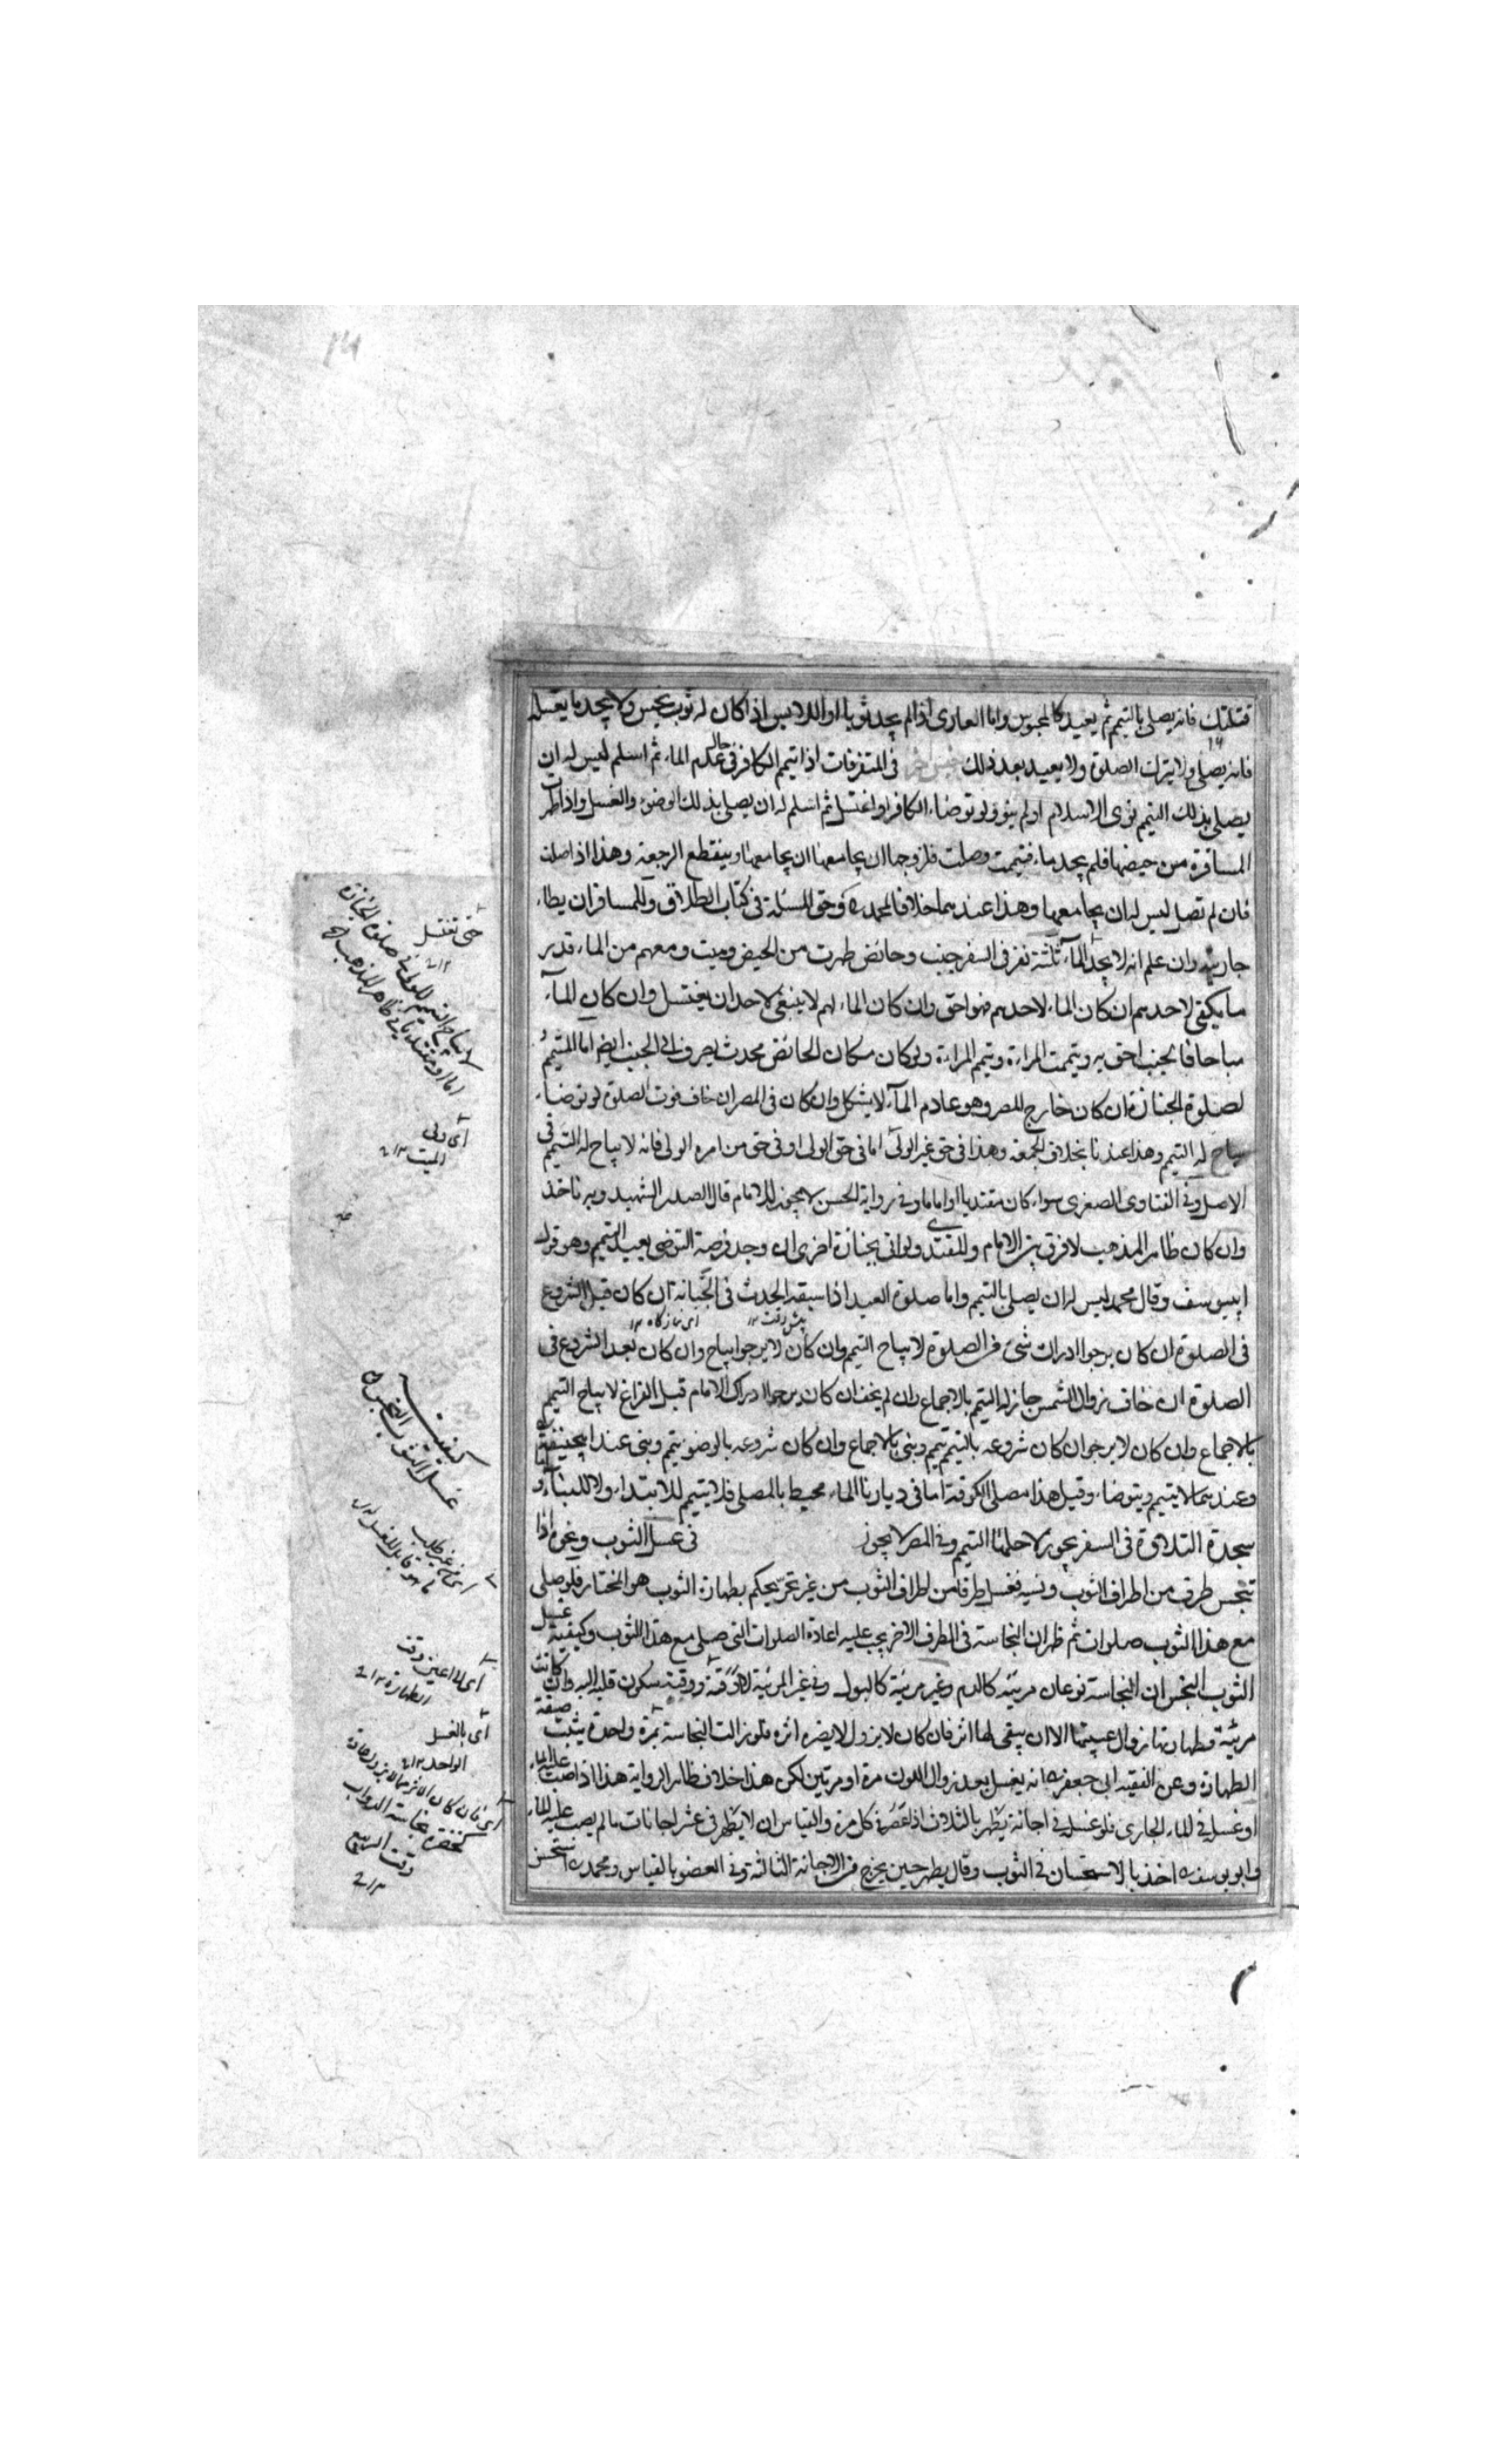 قتلتك فانه يصلى بالتيمم ثم يعيد كالمحبوس واما العارى اذا لم يجد ثوبا او اللابس اذا كان له ثوب نجس ولا يجد ما يغسله
فانه يصلى ولا يترك الصلوة ولا يعيد بعد ذلك فى المتفرقات اذا تيمم الكافر فى حال عدم الماء ثم اسلم ليس له ان
يصلى بذلك التيمم نوى الاسلام او لم ينو ولو توضاء الكافر او اغتسل ثم اسلم له ان يصلى بذلك الوضوء والغسل واذا طهرت
المسافرة من حيضها فلم يجد ماء فتيممت وصلت فلزوجها ان يجامعها ان يجامعها وينقطع الرجعة وهذا اذا صلت
فان لم تصل ليس له ان يجامعها وهذا عندهما خلافا لمحمد المسئلة فى كتاب الطلاق وللمسافر ان يطاء
جاريته وان علم انه لا يجد الماء ثلثة نفر فى السفر جنب وحائض طهرت من الحيض وميت ومعهم من الماء قدر
ما يكفى لاحدهم ان كان الماء لاحدهم فهو احق وان كان الماء لهم لا ينبغى لاحد ان يغتسل وان كان الماء
مباحا فالجنب احق به ويتممت المراءة وتيمم المراءة ولو كان مكان الحائض محدث يصرف الى الجنب ايضا اما المتيمم
لصلوة الجنازة ان كان خارج المصر وهو عادم الماء لا يشكل وان كان فى المصر ان خاف فوت الصلوة لو توضاء
يباح له التيمم وهذا عندنا بخلاف الجمعة وهذا فى حق غير الولى اما فى حق الولى او فى حق من امره الولى فانه لا يباح له التيمم فى
الاصل وفى الفتاوى الصغرى سواء كان مقتديا او اماما وفى رواية الحسن لا يجوز للامام قال الصدر الشهيد وبه ناخذ
وان كان ظاهر المذهب لا فرق بين الامام والمقتدى ولو اتى بجنازة اخرى ان وجد فرصة التوضى يعيد التيمم وهو قول
ابيوسف وقال محمد ليس له ان يصلى بالتيمم واما صلوة العيد اذا سبقه الحدث فى الجبانة ان كان قبل الشروع
فى الصلوة ان كان يرجوا ادراك شئ من الصلوة لا يباح التيمم وان كان لا يرجوا يباح وان كان بعد الشروع فى
الصلوة ان خاف زوال الشمس جاز له التيمم بالاجماع وان لم يخف ان كان يرجوا ادراك الامام قبل الفراغ لا يباح التيمم
بالاجماع وان كان لا يرجوا ان كان شروعه بالتيمم تيمم وبنى بالاجماع وان كان شروعه بالوضو يتيمم وبنى عند ابيحنيفة
وعندهما لا يتيمم ويتوضاء وقيل هذا مصلى الكوفة اما فى ديارنا الماء محيط بالمصلى فلا يتيمم للابتداء ولا للبناء و
سجدة التلاوة فى السفر يجوز لاجلها التيمم وفى المصر لا يجوز فى غسل الثوب ونحوه اذا
تنجس طرف من اطراف الثوب ونسيه فغسل طرفا من اطراف الثوب من غير تحرى يحكم بطهارة الثوب هو المختار فلو صلى
مع هذا الثوب صلوات ثم ظهر ان النجاسة فى الطرف الاخر يجب عليه اعادة الصلوات التى صلى مع هذا الثوب وكيفية غسل
الثوب النجس ان النجاسة نوعان مرئية كالدم وغير مرئية كالبول وفى غير المرئية سكون قلبه اليه وان كانت
مرئية فطهارتها زوال عينها الا ان يبقى لها اثر فان كان لا يزول لا يضره اثره فلو زالت النجاسة بمرة واحدة يثبت
الطهارة وعن الفقيه ابى جعفر انه يغسل بعد زوال اللون مرة او مرتين لكن هذا خلاف ظاهر الرواية هذا اذا صب عليه الماء
او غسل فى الماء الجارى فلو غسل فى اجانة يطهر بالثلاث اذا عصر فى كل مرة والقياس ان لا يطهر فى عشر اجانات ما لم يصب عليه الماء
وابو يوسف اخذ بالاستحسان فى الثوب وقال يطهر حين يخرج من الاجانة الثالثة وفى العضو بالقياس ومحمد استحسن
حتى تغتسل
لا يباح التيمم للولى فى صلوة الجنازة
اى ولى
الميت ١٢
كيفية
غسل الثوب النجس
اى من غير طلب
اى لا اعين وقت
الطهارة ١٢
اى بالغسل
الواحد ١٢
اى فان كان الاثر مما لا يزول
كخضرة نجاسة الدواب
وقت الربيع
١٢